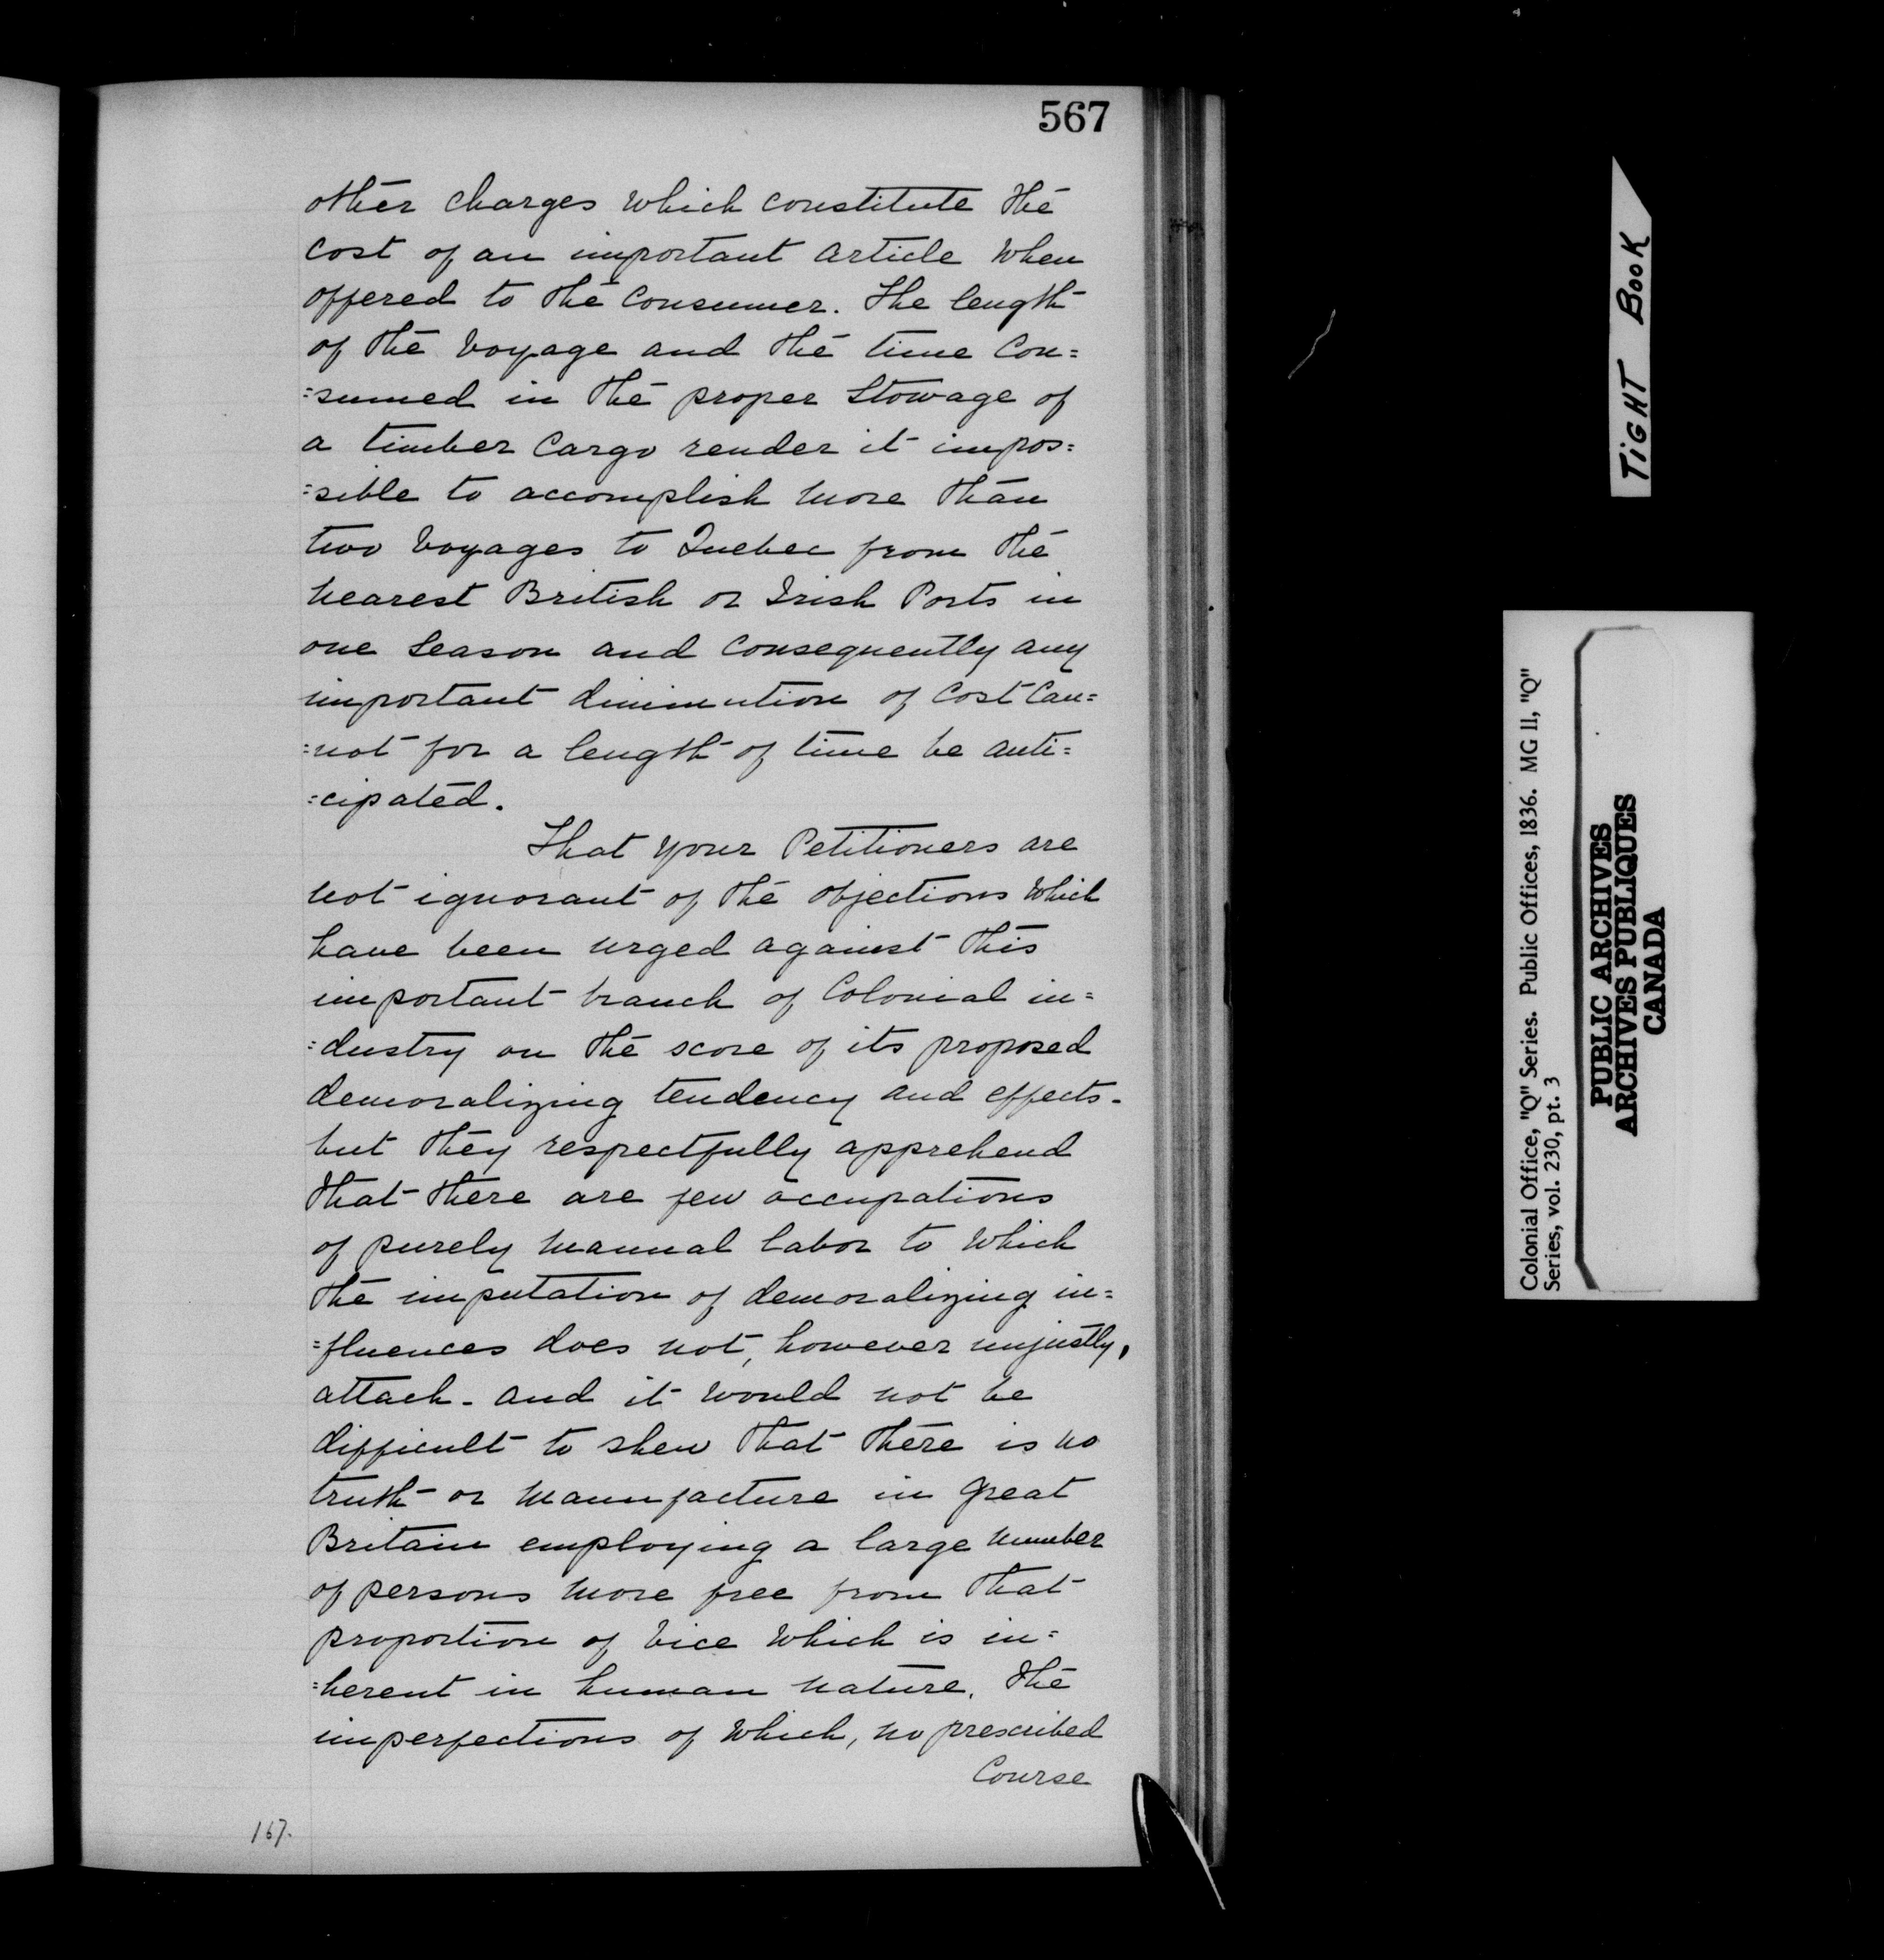 567
other charges which constitute the
cost of an important article when
offered to the Consumer. The length
of the voyage and the time Con=
=sumed in the proper Stowage of
a timber Cargo render it impos=
=sible to accomplish more than
two voyages to Quebec from the
nearest British or Irish Ports in
one Season and Consequently any
important diminution of Cost Can=
=not for a length of time be anti=
=cipated.
That your Petitioners are
not ignorant of the objections which
have been urged against this
important branch of Colonial in=
=dustry on the score of its proposed
demoralizing tendency and effects-
but they respectfully apprehend
that there are few occupations
of purely manual labor to which
the imputation of demoralizing in=
=fluences does not, however unjustly,
attach - and it would not be
difficult to shew that there is no
truth or manufacture in Great
Britain employing a large number
of persons more free from that
proportion of vice which is in=
=herent in human nature, the
imperfections of which, no prescribed
Course
167.
TIGHT BOOK
Colonial Office, "Q" Series. Public Offices, 1836. MG 11, "Q"
Series, vol. 230, pt. 3
PUBLIC ARCHIVES
ARCHIVES PUBLIQUES
CANADA